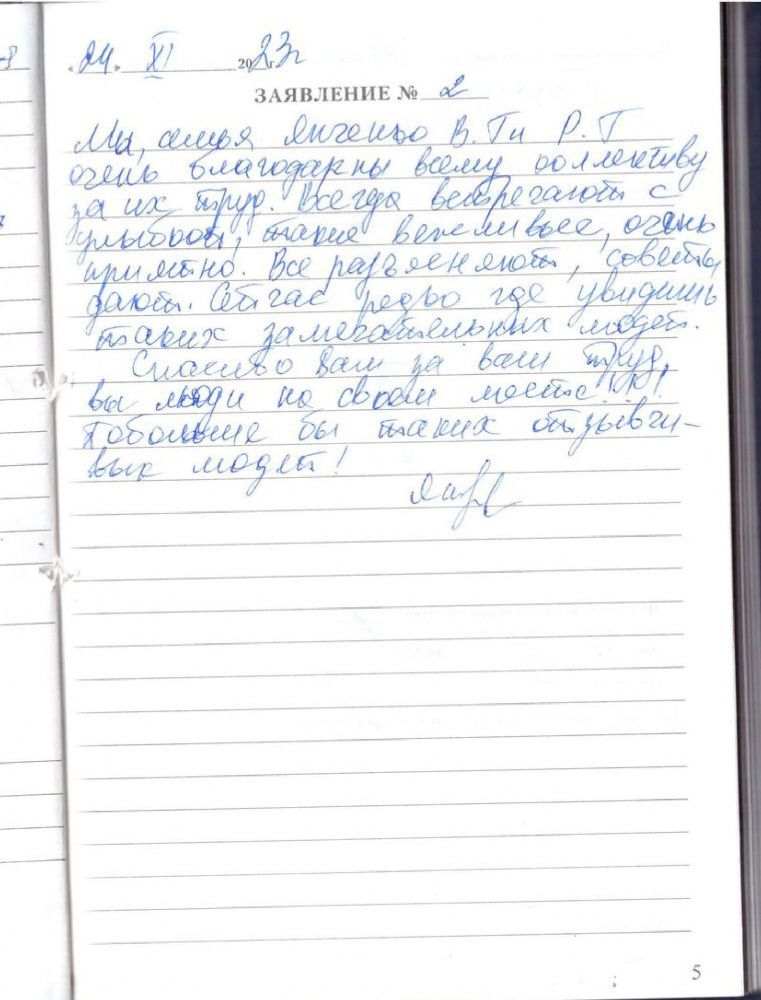 „24„ XI 2023г
ЗАЯВЛЕНИЕ № 2
Мы, семья Янченко В. Ги Р. Г
очень благодарны всему коллективу
за их труд. Всегда встречают с
улыбкой, такие вежливые, очень
приятно. Все разъясняют, советы
дают. Сейчас редко где увидишь
таких замечательных людей.
Спасибо Вам за ваш труд,
вы люди на своем месте!!!
Побольше бы таких отзывчи-
вых людей!
5